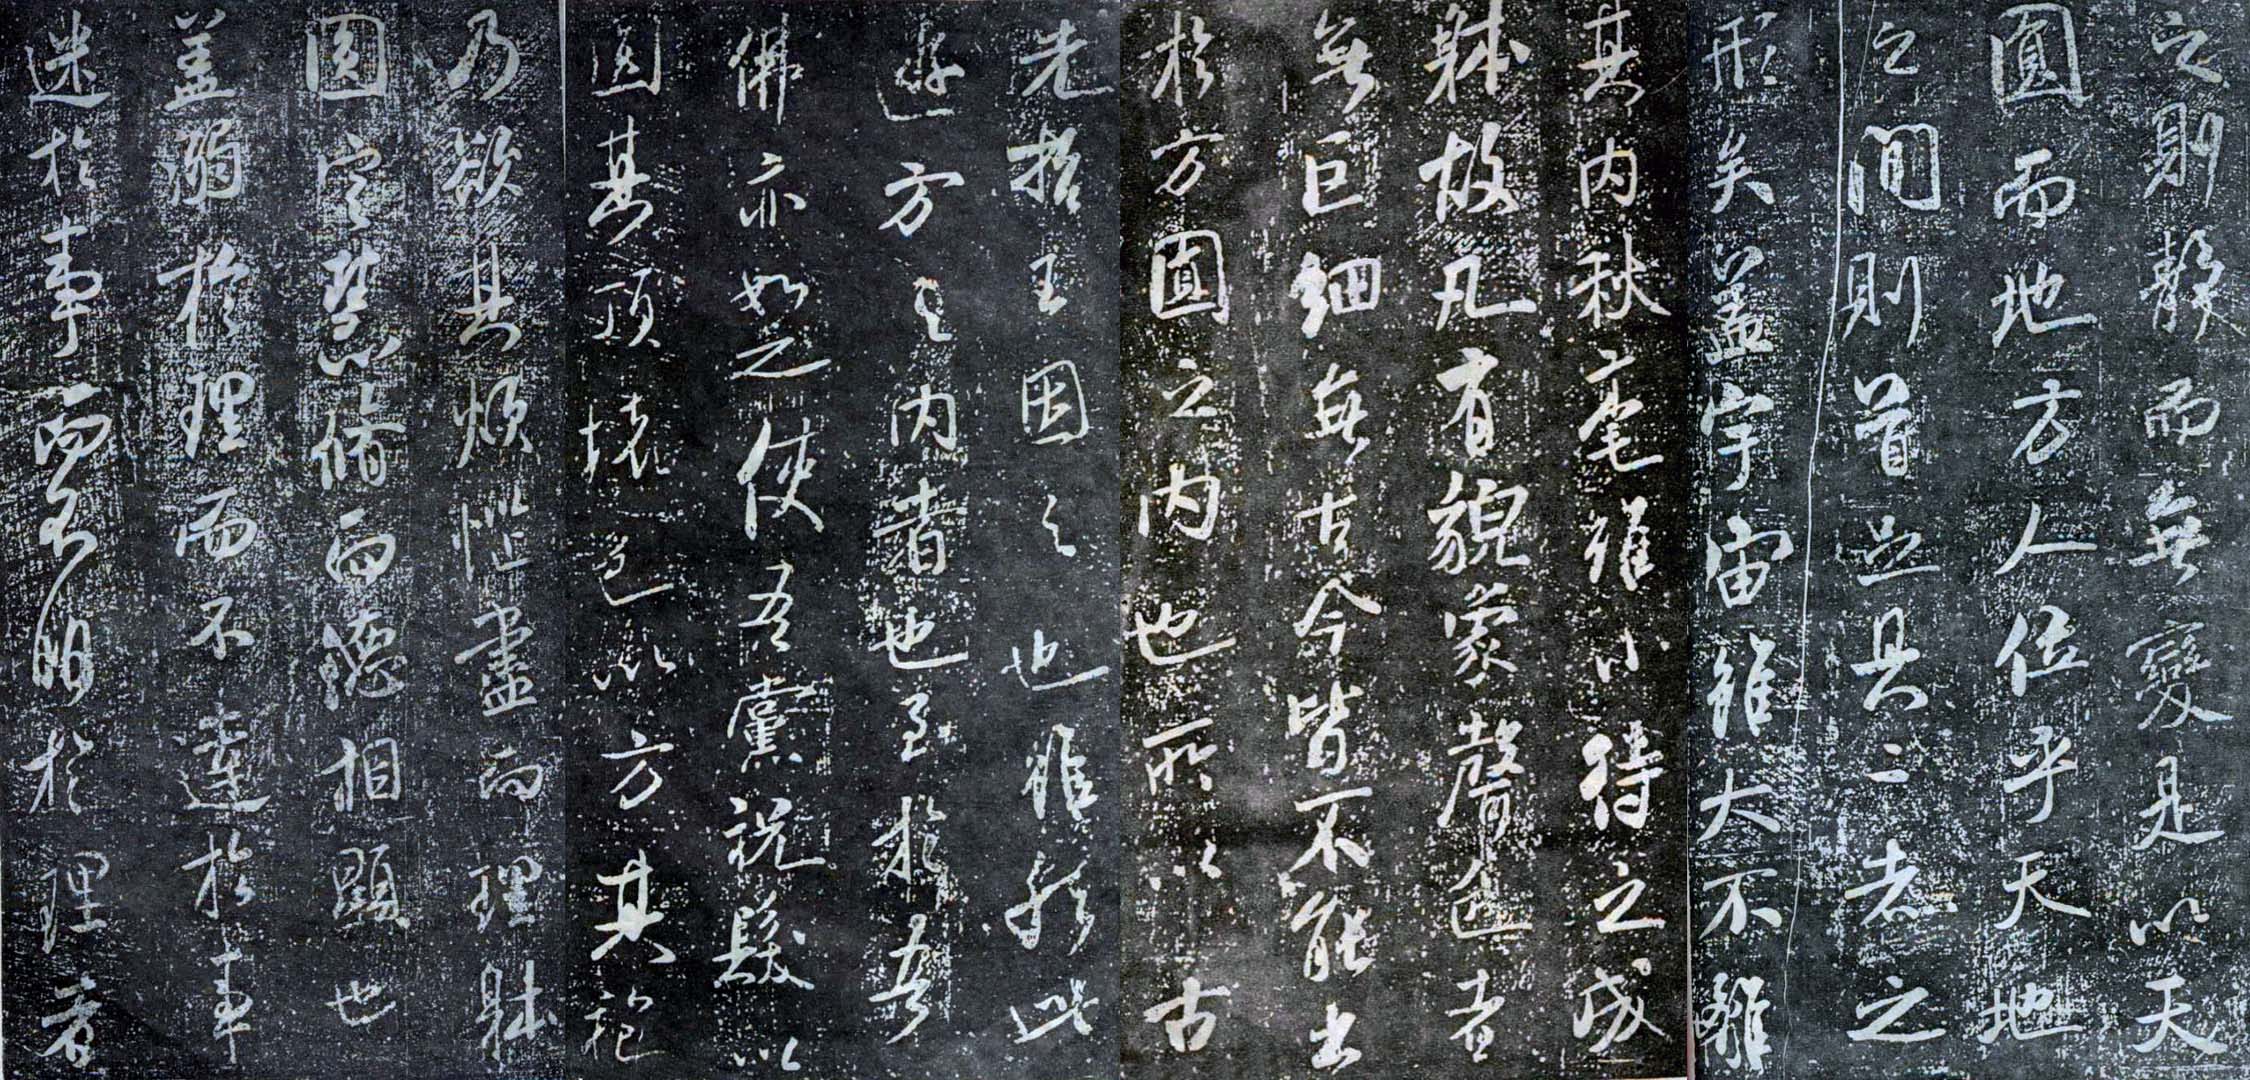 之則靜而無變是以天
圓而地方人位乎天地
之間則首足具二者之
形矣蓋宇宙雖大不離
其內秋毫雖小待之成
躰故凡有貌象聲色者
無巨細無古今皆不能出
於方圓之內也所以古
先哲王因之也雖然此
遊方之內者也至於吾
佛亦如之使吾黨祝髮以
圓其頂壞色以方其袍
乃欲其煩惱盡而理躰
圓定慧脩而德相顯也
蓋溺於理而不達於事
迷於事而不明於理者